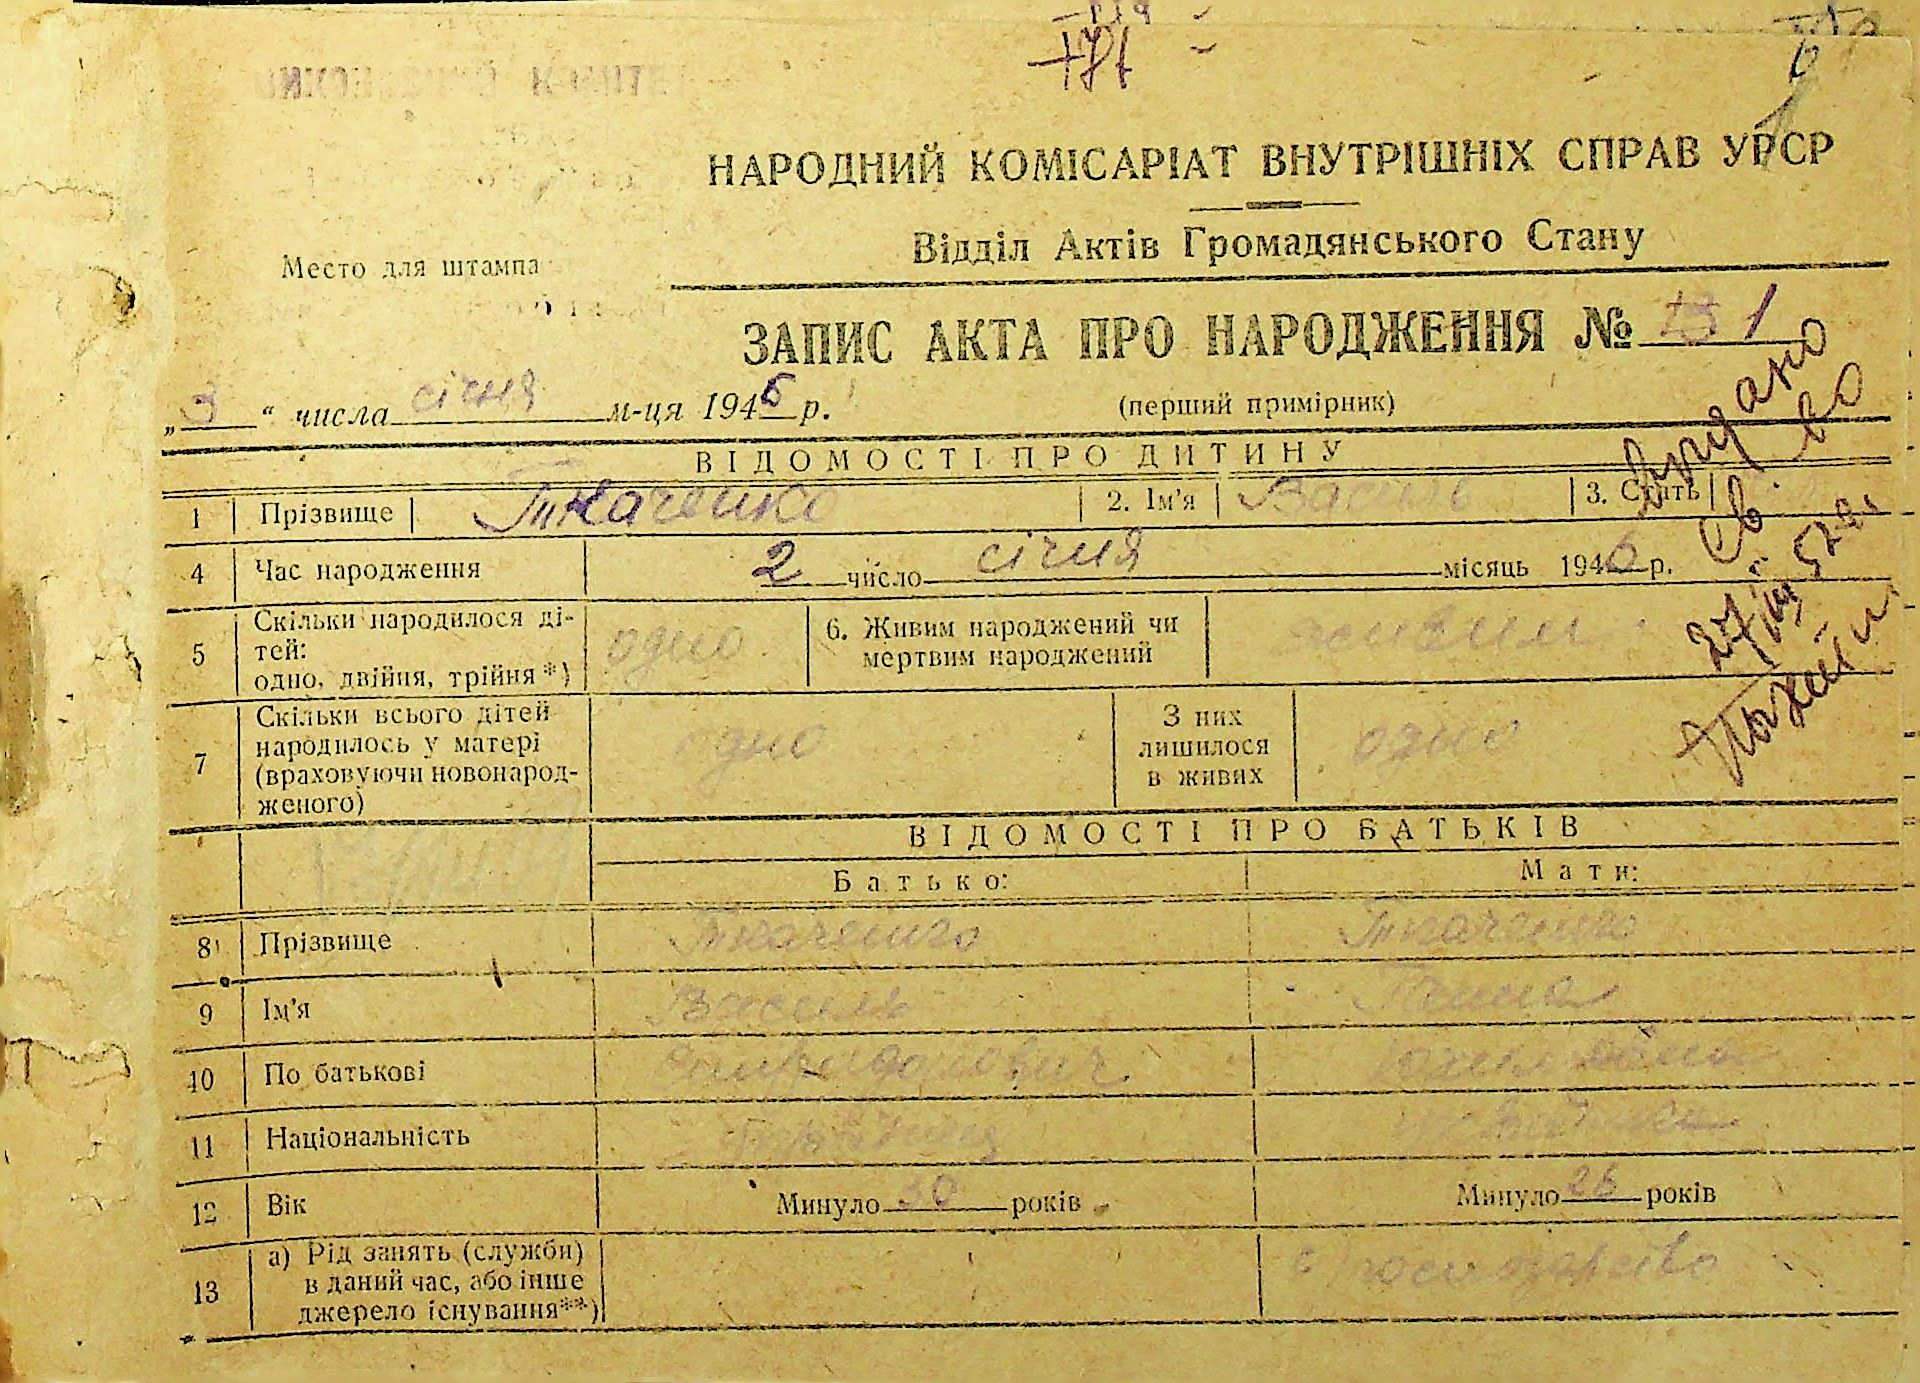 НАРОДНИЙ КОМІСАРІАТ ВНУТРІШНІХ СПРАВ УРСР
Відділ Актів Громадянського Стану
Место для штампа
ЗАПИС АКТА ПРО НАРОДЖЕННЯ № 1
„3“ числа січня м-ця 1946 р. (перший примірник)
ВІДОМОСТІ ПРО ДИТИНУ
1 Прізвище Ткаченко 2. Ім'я Василь 3. Стать
4 Час народження 2 число січня місяць 1946 р.
5 Скільки народилося ді-
тей:
одно, двійня, трійня *) одно 6. Живим народжений чи
мертвим народжений живим
7 Скільки всього дітей
народилось у матері
(враховуючи новонарод-
женого) одно З них
лишилося
в живих одно
Выдано
св во
27/III 52 г.
ВІДОМОСТІ ПРО БАТЬКІВ
Батько: Мати:
8 Прізвище Ткаченко Ткаченко
9 Ім'я Василь Ганна
10 По батькові
11 Національність
12 Вік Минуло 30 років Минуло 26 років
13 а) Рід занять (служби)
в даний час, або інше
джерело існування**) господарство